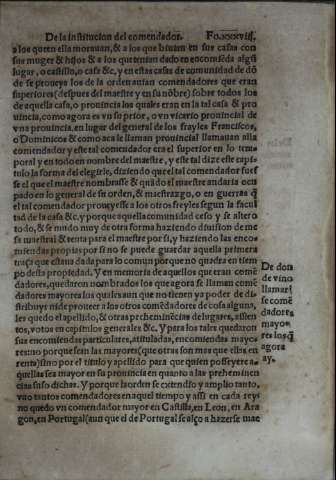 De la institucion del comendador. Fo.xxxviij.
a los que en ella morauan, & a los que biuian en sus casas con
sus muger & hijos & a los que tenian dado en comiẽda algũ
lugar, o castillo, o casa &c, y en estas casas de comunidad de dõ
de se proueya los de la orden auian comendadores que eran
superiores (despues del maestre y en su nõbre) sobre todos los
de aquella casa, o prouincia los quales eran en la tal casa & pro
uincia, como agora es vn su prior, o vn vicerio prouincial de
vna prouincia, en lugar del general de los frayles Franciscos,
o Dominicos & como aca le llaman prouincial llamauan alla
comendador y este tal comendador era el superior en lo tem
poral y en todo en nombre del maestre, y este tal dize este capi
tulo la forma del elegirle, diziendo que el tal comendador fues
se el que el maestre nombrasse & quãdo el maestre andaria ocu
pado en lo general de su orden, & maestrazgo, o en guerras q̃
el tal comendador proueyesse a los otros freyles segun la facul
tad de la casa &c, y porque aquella comunidad cesso y se altero
todo, & se mudo muy de otra forma haziendo diuision de me
sa maestral & renta para el maestre por si, y haziendo las enco
miendas propias por si no se puede guardar aquella primera
traça que estaua dada para lo comun porque no quadra en tiem
po desta propiedad. Y en memoria de aquellos que eran comẽ
dadores, quedaron nombrados los que agora se llaman comẽ
dadores mayores los quales aun que no tienen ya poder de dis
tribuyr ni de proueer a los otros comẽdadores de cosa alguna,
les quedo el apellido, & otras preheminẽcias de lugares, assien
tos, votos en capitulos generales &c. Y para los tales quedaron
sus encomiendas particulares, atituladas, encomiendas mayo
res: no porque sean las mayores (que otras son mas que ellas en
renta) sino por el titulo y apellido para que quien posseyere a
quellas sea mayor en su prouincia en quanto a las prehemi­nen
cias suso dichas. Y porque la orden se extendio y amplio tanto,
vuo tantos comendadores en aquel tiempo y assi en cada reyno
no quedo vn comendador mayor en Castilla, en Leon, en Ara
gon, en Portugal (aun que el de Portugal se alço a hazerse mae
De dõ
de vino
llamar
se comẽ
dadores
mayo-
res los q̃
agora
ay.